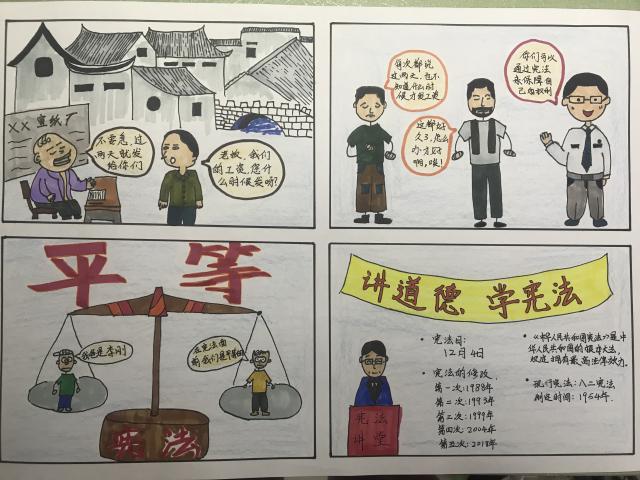 ××宣纸厂
不要急,过
两天就发
给你们
老板,我们
的工资,您什
么时候发呀?
每次都说
过两天,也不
知道什么时
候才能发工资
这都好
久了,怎么
办才好
啊,唉!
你们可以
通过宪法
来保障自
己的权利
平等
我爸是李刚
在宪法面
前我们是平等的
宪法
讲道德 学宪法
宪法日:
12月4日
宪法的修改
第一次:1988年
第二次:1993年
第三次:1999年
第四次:2004年
第五次:2018年
《中华人民共和国宪法》是中
华人民共和国的根本大法,
规定拥有最高法律效力.
现行宪法:八二宪法
制定时间:1954年.
宪法
讲堂